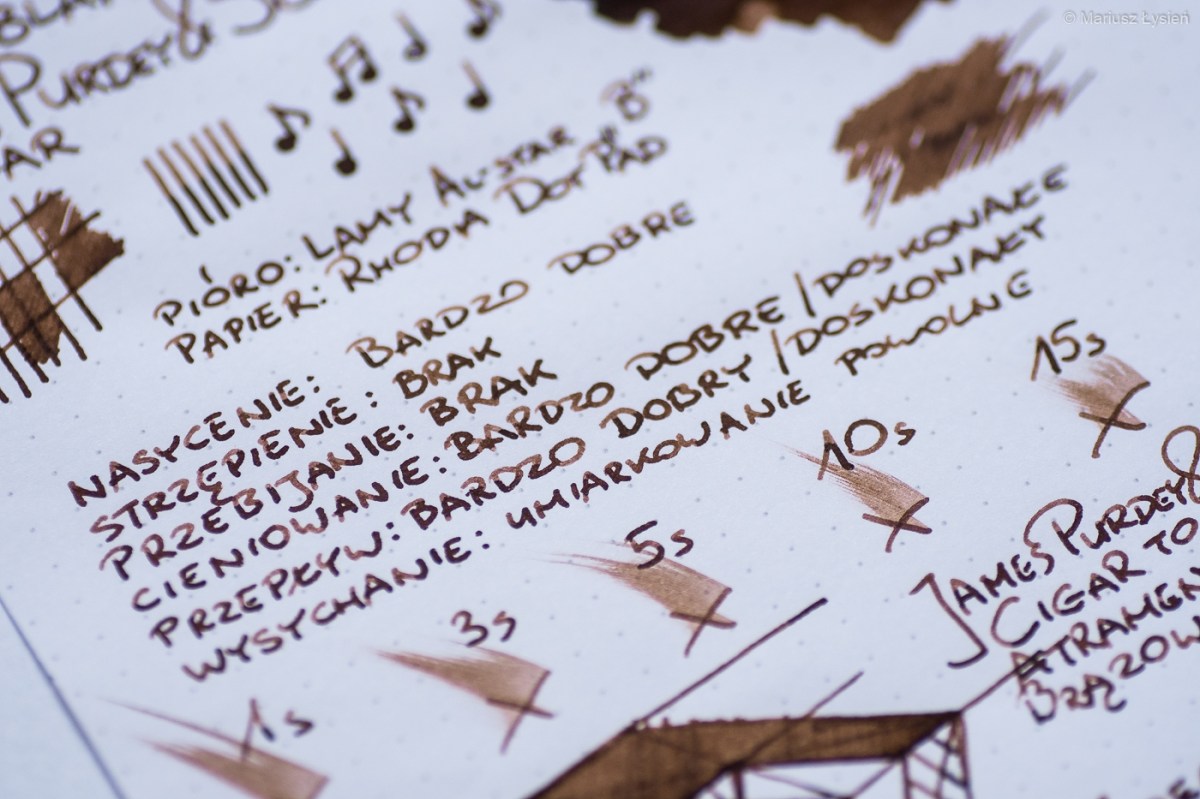 © Mariusz Łysień
PURDEY &
PIÓRO: LAMY AL-STAR "B"
PAPIER: RHODIA DOT PAD
NASYCENIE: BARDZO DOBRE
STRZĘPIENIE: BRAK
PRZEBIJANIE: BRAK
CIENIOWANIE: BARDZO DOBRE/DOSKONAŁE
PRZEPŁYW: BARDZO DOBRY/DOSKONAŁY
WYSYCHANIE: UMIARKOWANIE POWOLNE
1s
3s
5s
10s
15s
JAMES PURDEY &
CIGAR TO
ATRAMEN
BRĄZOW